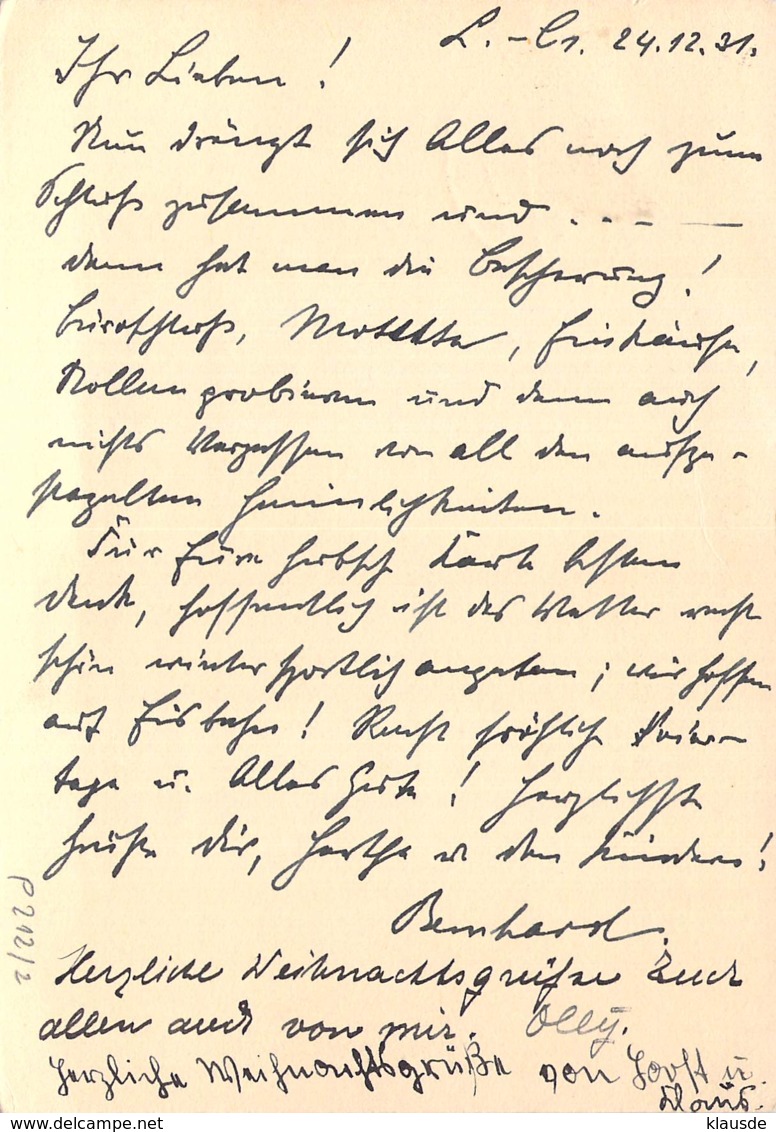 L. - C1. 24.12.31.
Ihr Lieben!
Nun drängt sich Alles noch zum
Schluß zusammen und . . . - —
dann hat man die Bescherung!
Büroschluß, Motette, Einkäufe,
Stollen probieren und dann auch
nichts Vergessen von all den aufge-
stapelten Heimlichkeiten.
Für Eure hübsche Karte besten
Dank, hoffentlich ist das Wetter recht
schön wintersportlich angetan; wir hoffen
auf Eisbahn! Recht fröhliche Feier-
tage u. Alles Gute! Herzlichste
Grüße Dir, Hertha u den Kindern!
Bernhard.
Herzliche Weihnachtsgrüße Euch
allen auch von mir. Olly.
Herzliche Weihnachtsgrüße von Joost u.
Klaus.
P 212/2
klausde